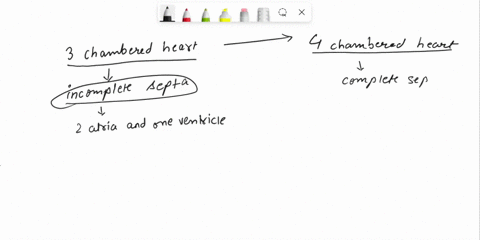 3 chambered heart
4 chambered heart
incomplete septa
complete sep
2 atria and one ventricle